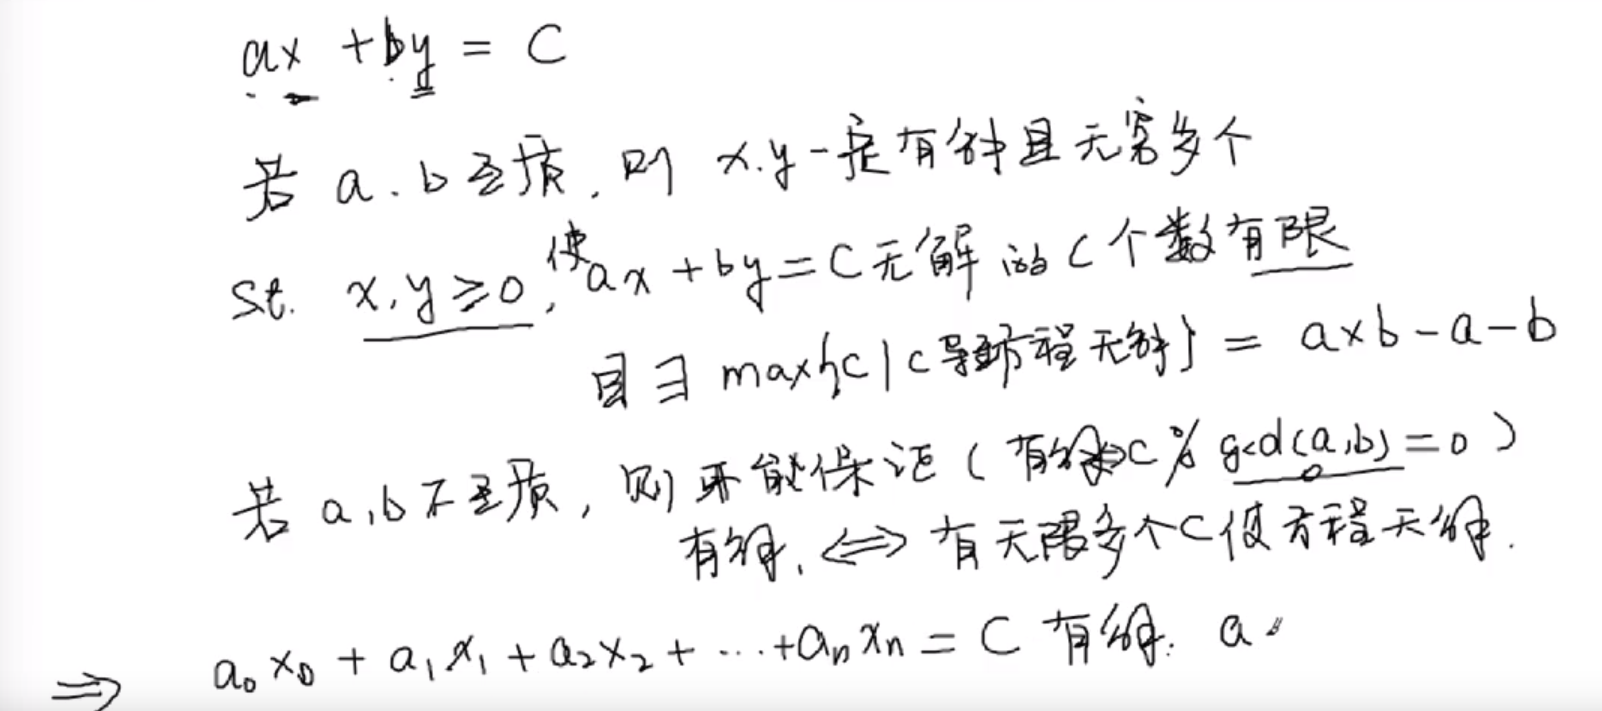 ax + by = C
若 a.b互质, 则 x.y一定有解且无穷多个
St. x,y≥0, 使ax+by=C无解的C个数有限
且∃ max{c|c导致方程无解} = a×b-a-b
若 a,b不互质, 则不能保证(有解⇔C % gcd(a,b)=0)
有解, ⇔ 有无限多个C使方程无解.
⇒ a₀x₀ + a₁x₁ + a₂x₂ + ...+aₙxₙ = C 有解: a